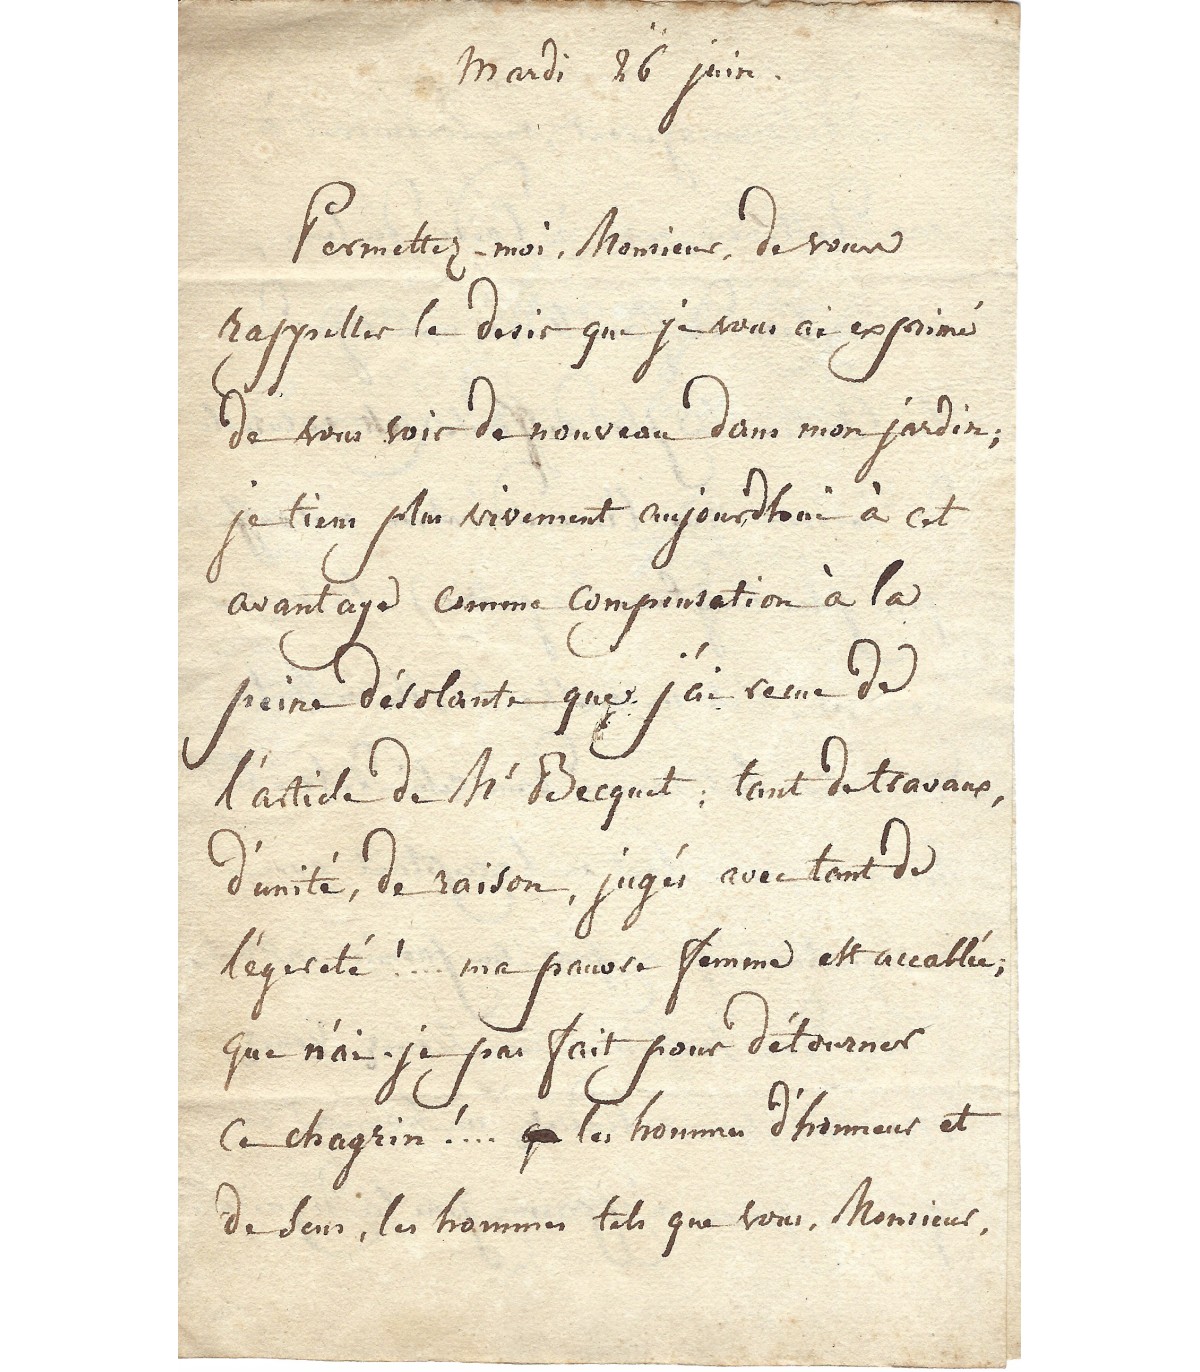 Mardi 26 juin.
Permettez-moi, Monsieur, de vous
rappeller le desir que je vous ai exprimé
de vous voir de nouveau dans mon jardin;
je tiens plus vivement aujourdhui à cet
avantage comme compensation à la
peine désolante que j'ai reçue de
l'article de Mr Becquet; tant de travaux,
d'unité, de raison, jugés avec tant de
légereté!... ma pauvre femme est accablée;
que n'ai-je pas fait pour détourner
ce chagrin!.... les hommes d'honneur et
de sens, les hommes tels que vous, Monsieur,